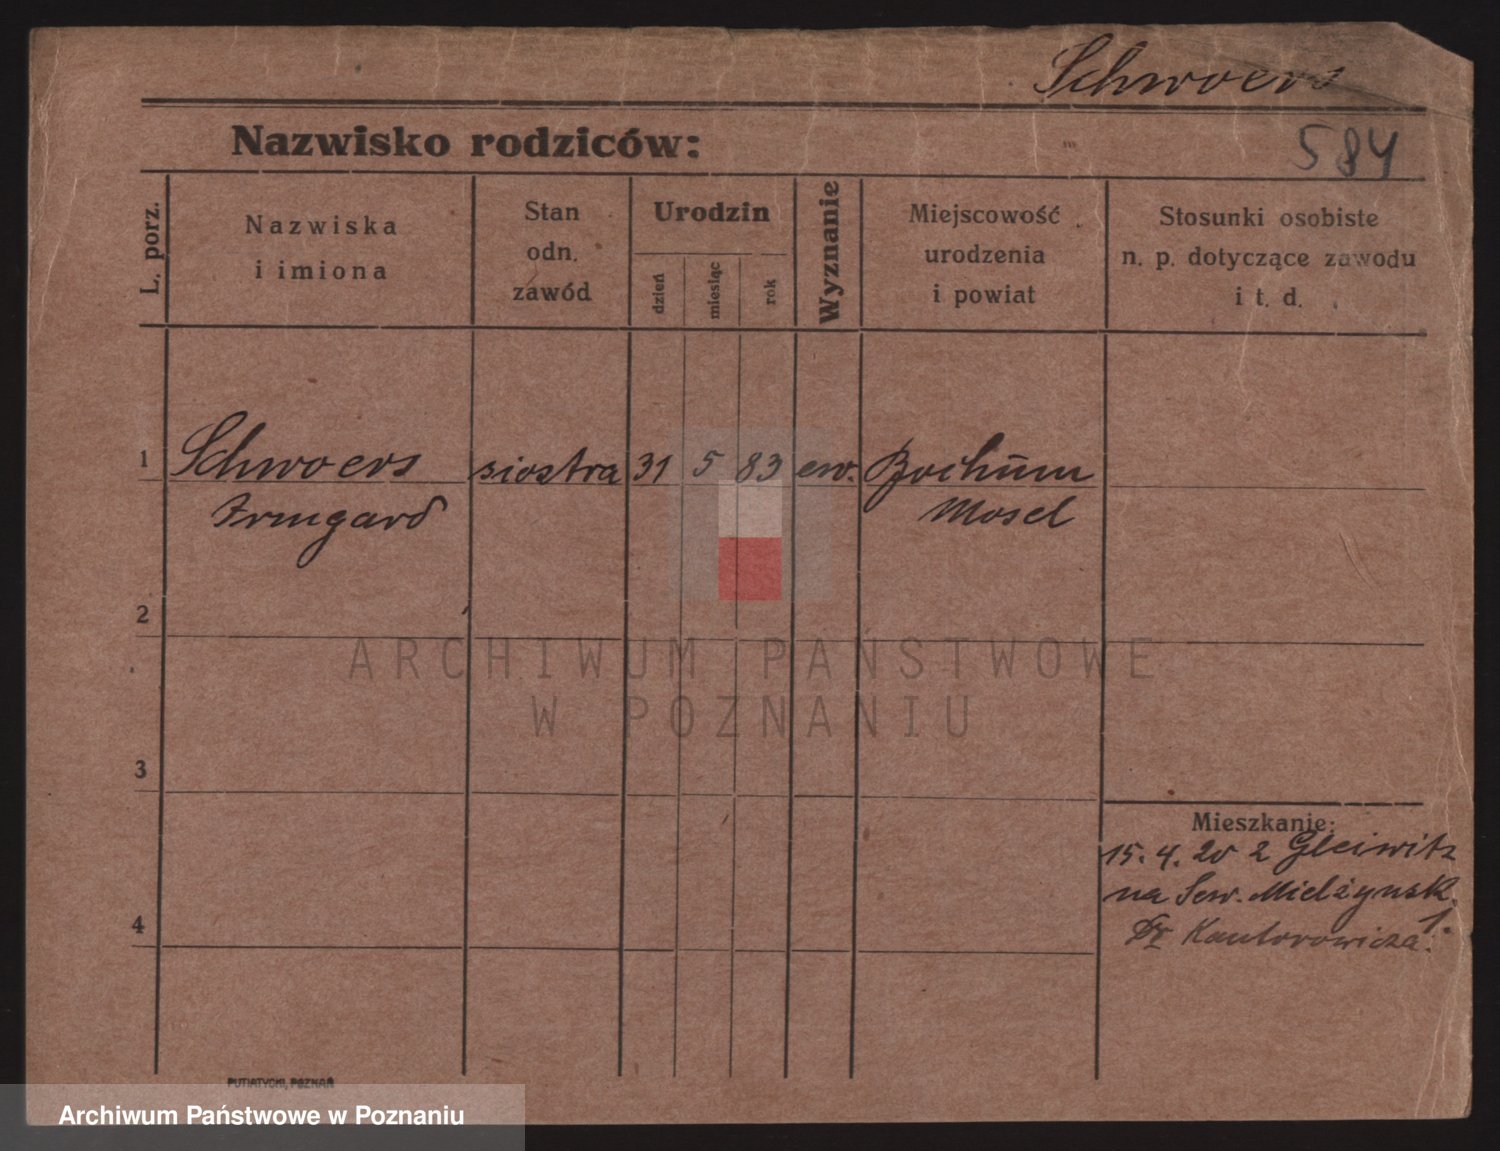 Schwoers
Nazwisko rodziców:
584
L. porz.
Nazwiska
i imiona
Stan
odn.
zawód
Urodzin
dzień
miesiąc
rok
Wyznanie
Miejscowość
urodzenia
i powiat
Stosunki osobiste
n. p. dotyczące zawodu
i t. d.
1 Schwoers siostra 31 5 83 ew. Bochum
Irmgard Mosel
2
ARCHIWUM PAŃSTWOWE
W POZNANIU
3
Mieszkanie:
15. 4. 20 z Gleiwitz
na Sew. Mielżynsk.
1.
4
Dr Kantorowicza
PUTIATYCKI, POZNAŃ
Archiwum Państwowe w Poznaniu